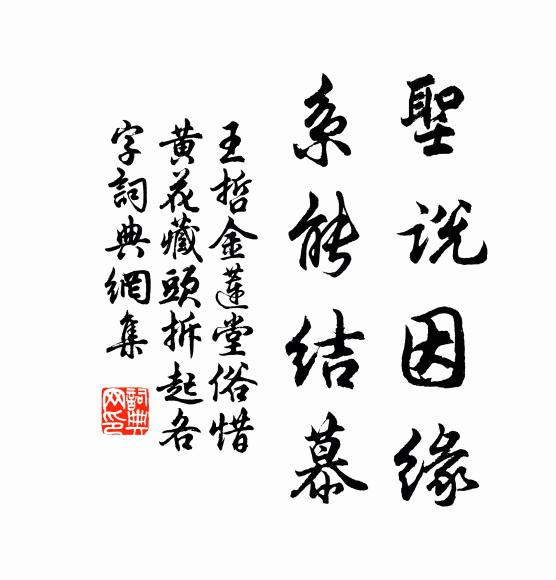 聖説因緣
系能結慕
王哲金蓮堂俗惜
黄花藏頭拆起各
字詞典網集
詞典
网印